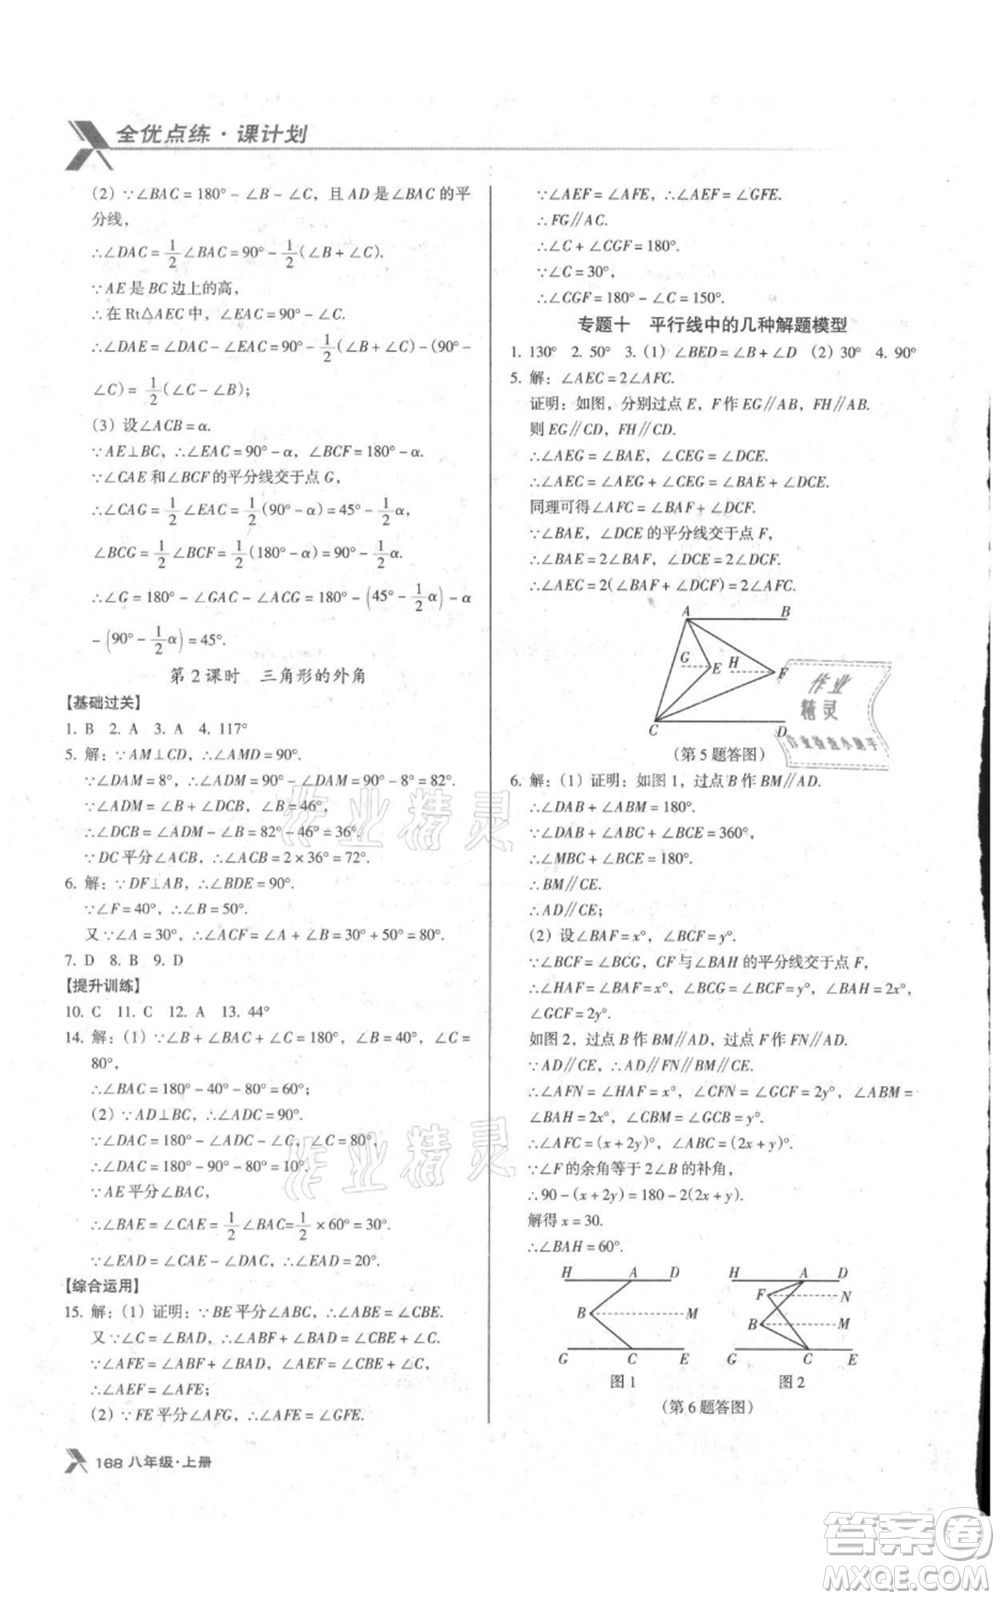 全优点练·课计划
(2) ∵∠BAC=180°-∠B-∠C, 且 AD 是∠BAC 的平
分线,
∴∠DAC=1/2∠BAC=90°-1/2(∠B+∠C).
∵AE 是 BC 边上的高,
∴在 Rt△AEC 中, ∠EAC=90°-∠C.
∴∠DAE=∠DAC-∠EAC=90°-1/2(∠B+∠C)-(90°-
∠C)=1/2(∠C-∠B);
(3) 设∠ACB=α.
∵AE⊥BC, ∴∠EAC=90°-α, ∠BCF=180°-α.
∵∠CAE 和∠BCF 的平分线交于点 G,
∴∠CAG=1/2∠EAC=1/2(90°-α)=45°-1/2α,
∠BCG=1/2∠BCF=1/2(180°-α)=90°-1/2α.
∴∠G=180°-∠GAC-∠ACG=180°-(45°-1/2α)-α
-(90°-1/2α)=45°.
第 2 课时 三角形的外角
【基础过关】
1. B 2. A 3. A 4. 117°
5. 解: ∵AM⊥CD, ∴∠AMD=90°.
∵∠DAM=8°, ∴∠ADM=90°-∠DAM=90°-8°=82°.
∵∠ADM=∠B+∠DCB, ∠B=46°,
∴∠DCB=∠ADM-∠B=82°-46°=36°.
∵DC 平分∠ACB, ∴∠ACB=2×36°=72°.
6. 解: ∵DF⊥AB, ∴∠BDE=90°.
∵∠F=40°, ∴∠B=50°.
又∵∠A=30°, ∴∠ACF=∠A+∠B=30°+50°=80°.
7. D 8. B 9. D
【提升训练】
10. C 11. C 12. A 13. 44°
14. 解: (1) ∵∠B+∠BAC+∠C=180°, ∠B=40°, ∠C=
80°,
∴∠BAC=180°-40°-80°=60°;
(2) ∵AD⊥BC, ∴∠ADC=90°.
∵∠DAC=180°-∠ADC-∠C, ∠C=80°,
∴∠DAC=180°-90°-80°=10°.
∵AE 平分∠BAC,
∴∠BAE=∠CAE=1/2∠BAC=1/2×60°=30°.
∵∠EAD=∠CAE-∠DAC, ∴∠EAD=30°-10°=20°.
【综合运用】
15. 解: (1) 证明: ∵BE 平分∠ABC, ∴∠ABE=∠CBE.
又∵∠C=∠BAD, ∴∠ABF+∠BAD=∠CBE+∠C.
∵∠AFE=∠ABF+∠BAD, ∠AEF=∠CBE+∠C,
∴∠AEF=∠AFE;
(2) ∵FE 平分∠AFG, ∴∠AFE=∠GFE.
∵∠AEF=∠AFE, ∴∠AEF=∠GFE.
∴FG∥AC.
∴∠C+∠CGF=180°.
∵∠C=30°,
∴∠CGF=180°-∠C=150°.
专题十 平行线中的几种解题模型
1. 130° 2. 50° 3. (1) ∠BED=∠B+∠D (2) 30° 4. 90°
5. 解: ∠AEC=2∠AFC.
证明: 如图, 分别过点 E, F 作 EG∥AB, FH∥AB.
则 EG∥CD, FH∥CD.
∴∠AEG=∠BAE, ∠CEG=∠DCE.
∴∠AEC=∠AEG+∠CEG=∠BAE+∠DCE.
同理可得∠AFC=∠BAF+∠DCF.
∵∠BAE, ∠DCE 的平分线交于点 F,
∴∠BAE=2∠BAF, ∠DCE=2∠DCF.
∴∠AEC=2(∠BAF+∠DCF)=2∠AFC.
A B
G E H F
C D
(第 5 题答图)
作业
精灵
6. 解: (1) 证明: 如图 1, 过点 B 作 BM∥AD.
∴∠DAB+∠ABM=180°.
∵∠DAB+∠ABC+∠BCE=360°,
∴∠MBC+∠BCE=180°.
∴BM∥CE.
∴AD∥CE;
(2) 设∠BAF=x°, ∠BCF=y°.
∵∠BCF=∠BCG, CF 与∠BAH 的平分线交于点 F,
∴∠HAF=∠BAF=x°, ∠BCG=∠BCF=y°, ∠BAH=2x°,
∠GCF=2y°.
如图 2, 过点 B 作 BM∥AD, 过点 F 作 FN∥AD.
∵AD∥CE, ∴AD∥FN∥BM∥CE.
∴∠AFN=∠HAF=x°, ∠CFN=∠GCF=2y°, ∠ABM=
∠BAH=2x°, ∠CBM=∠GCB=y°.
∴∠AFC=(x+2y)°, ∠ABC=(2x+y)°.
∵∠F 的余角等于 2∠B 的补角,
∴90-(x+2y)=180-2(2x+y).
解得 x=30.
∴∠BAH=60°.
H A D
B M
G C E
图 1
H A D
F N
B M
G C E
图 2
(第 6 题答图)
168 八年级·上册
作业精灵
作业精灵
答案卷
MXQE.COM